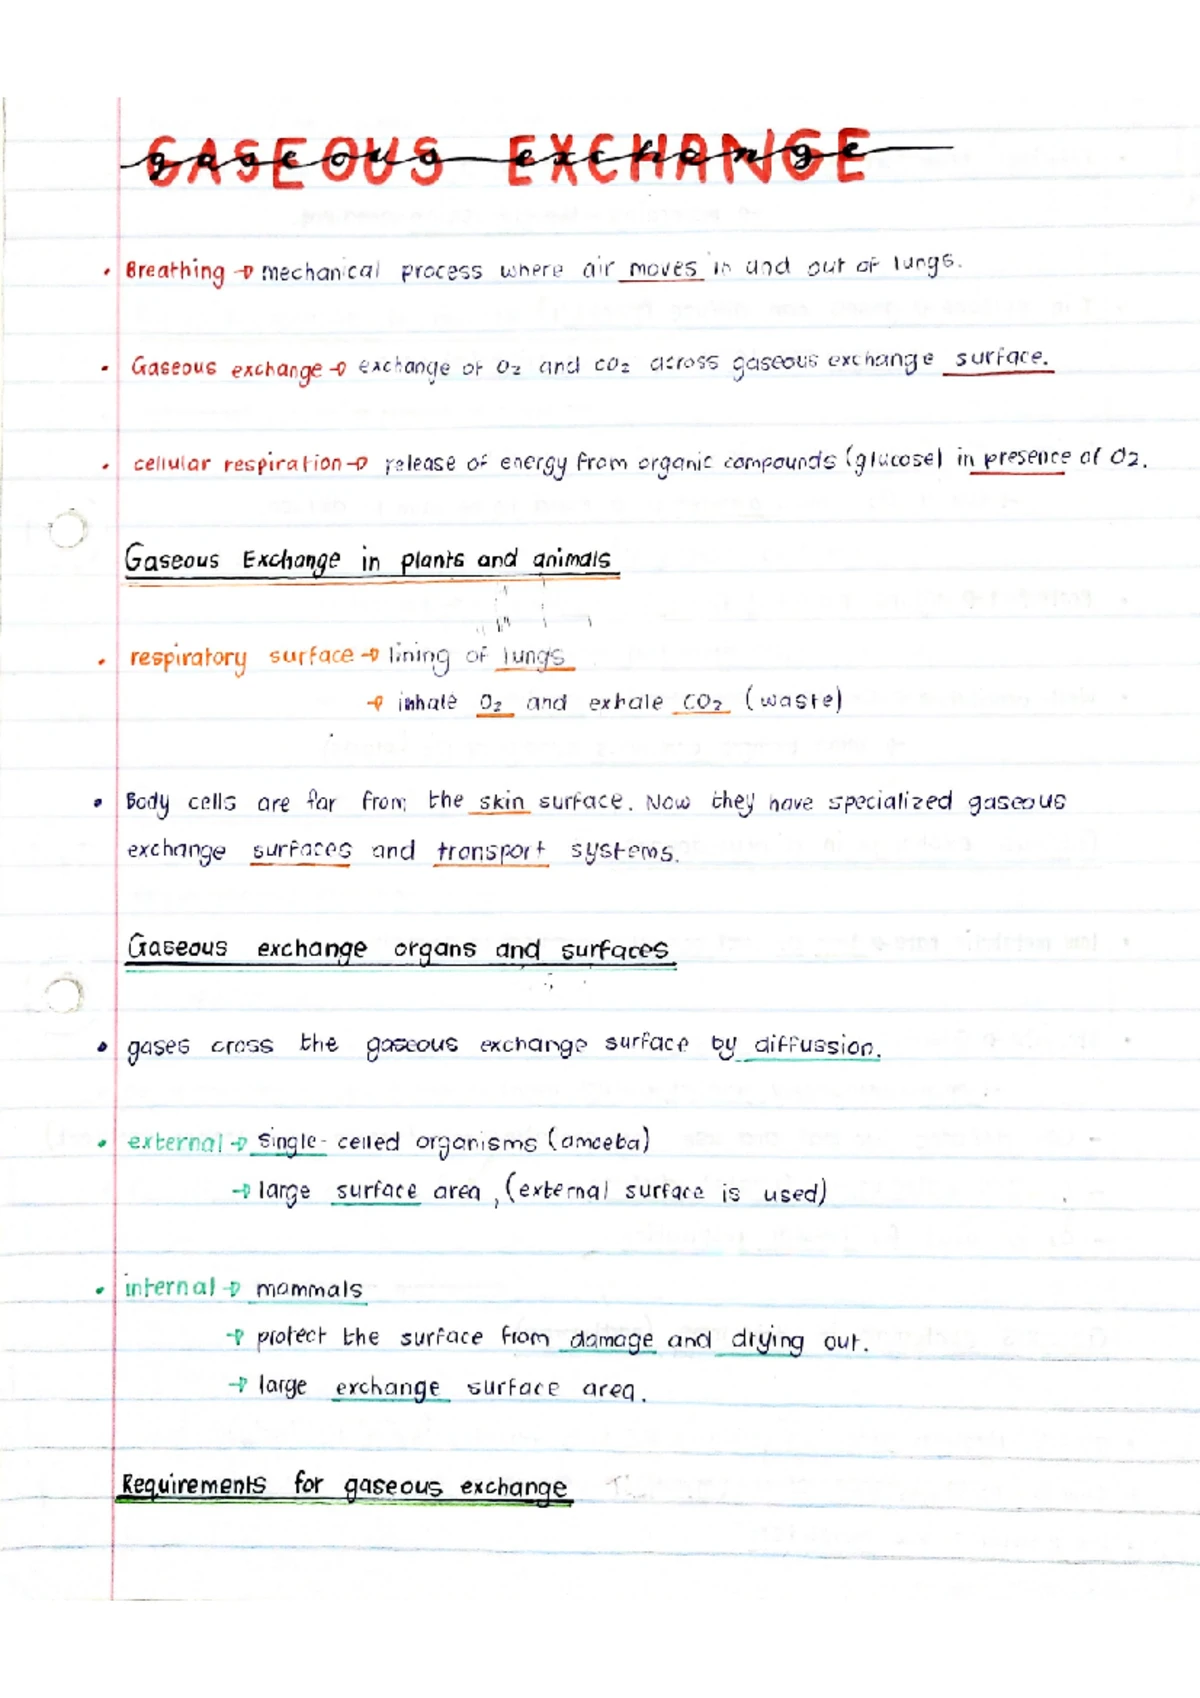 GASEOUS EXCHANGE
gaseous exchange
• Breathing → mechanical process where air moves in and out of lungs.
• Gaseous exchange → exchange of O₂ and CO₂ across gaseous exchange surface.
• cellular respiration → release of energy from organic compounds (glucose) in presence of O2.
Gaseous Exchange in plants and animals
• respiratory surface → lining of lungs
→ inhale O₂ and exhale CO₂ (waste)
• Body cells are far from the skin surface. Now they have specialized gaseous
exchange surfaces and transport systems.
Gaseous exchange organs and surfaces
• gases cross the gaseous exchange surface by diffussion.
• external → single-celled organisms (amoeba)
→ large surface area, (external surface is used)
• internal → mammals
→ protect the surface from damage and drying out.
→ large exchange surface area.
Requirements for gaseous exchange